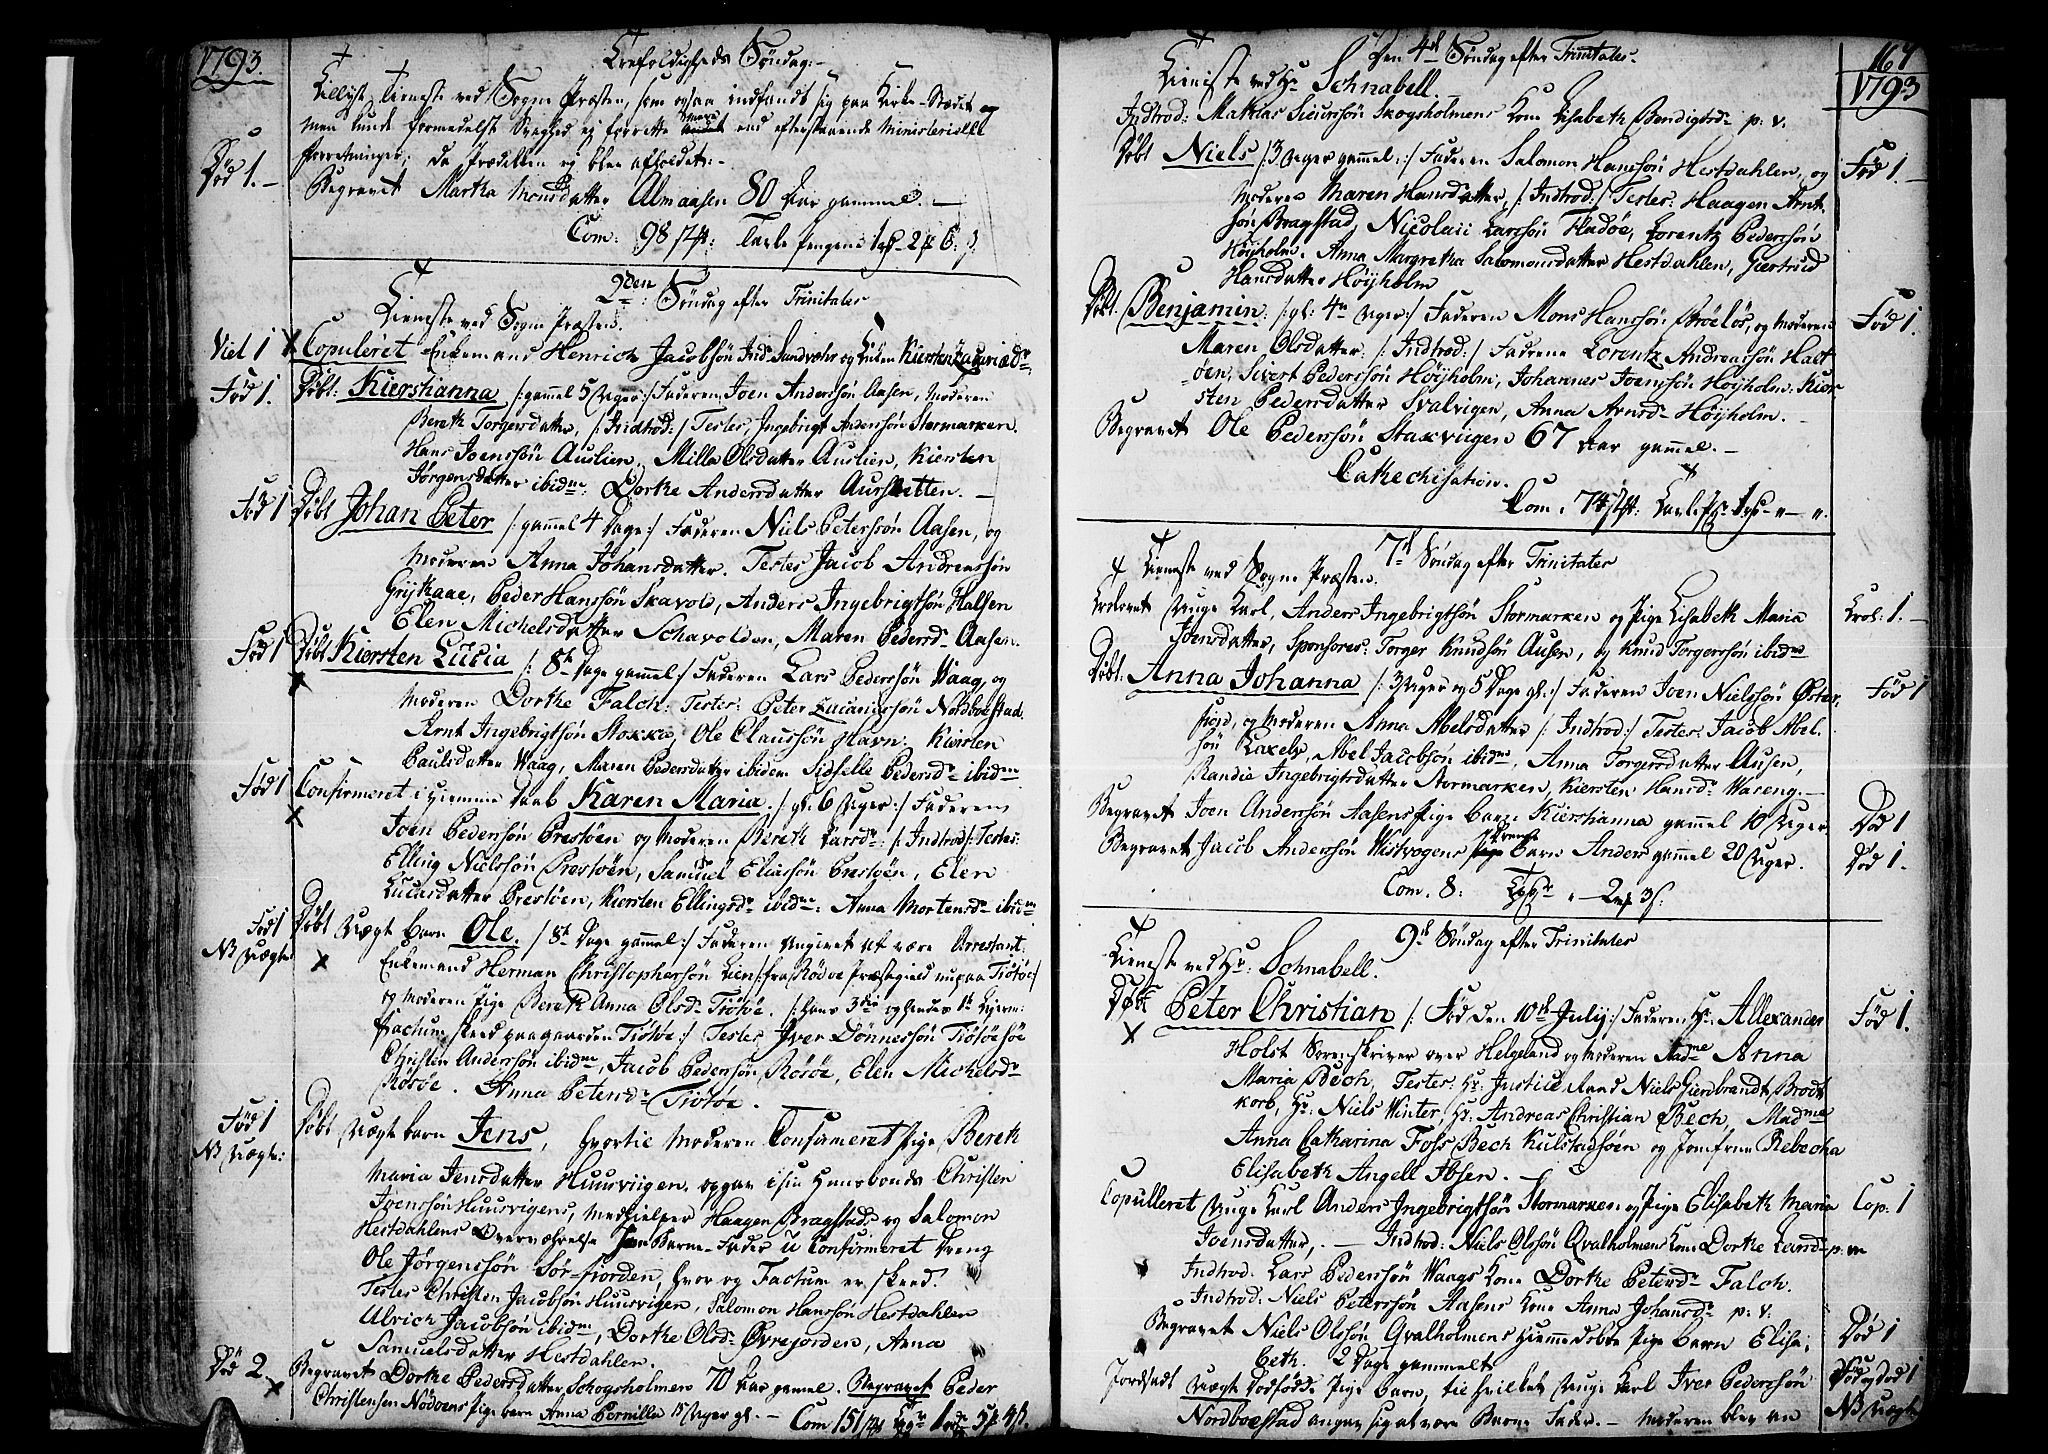 1793.
Trefoldigheds Søndag:-
Tienneste ved Sogne Præsten, som ogsaa indfandt sig paa Kirke-Stædet og
men kunde formedelst Svaghed ej forrette meere end efterstaaende Ministerielle
forretninger, da Prædiken ej blev afholdet:-
Død 1.- Begravet Martha Monsdatter Almaasen 80 Aar gammel.-
Com: 98 Tavle Pengene 2 6
2den Søndag efter Trinitates
Tieneste ved Sogne Præsten.
Viel 1 Copuleret Enkemand Henrich Jacobsøn Ind: Sandvohr og Enken Kiersten Zacariæd:
Fød 1. Døbt: Kierstianna /: gammel 5 Uger:/ Faderen Joen Andersøn Aasen, Moderen
Bereth Torgersdatter, /: Indtrod:/ Testes, Ingebrigt Andersøn Stormarken.
Hans Joenssøn Auslien, Milla Olsdatter Auslien, Kiersten
Jørgensdatter ibidm: Dorthe Andersdatter Aursletten.-
Fød 1 Døbt Johan Peter /: gammel 4 Dage:/ Faderen Niels Peterssøn Aasen, og
Moderen Anna Johansdatter. Testes Jacob Andreassøn
Grytaae, Peder Hanssøn Skavold, Anders Ingebrigtsøn Halsen
Elen Michelsdatter Schavolden, Maren Pedersd: Aasen.
Fød 1 Døbt Kiersten Lucia /: 8te Dage gammel:/ Faderen Lars Pederssøn Waag, og
Moderen Dorthe Falch: Testes: Peter Zacariassøn Nordboestad.
Arnt Ingebrigtsøn Stokka, Ole Claussøn Havn: Kiersten
Paulsdatter Waag, Maren Pedersdatter ibidem Sidselle Pedersd: ibidm
Fød 1 Confirmeret hiemme Daab Karen Maria. /: gl: 6 Uger:/ Faderen
Joen Pedersøn Prestøen og Moderen Bereth Larsd: /: Indtrod:/ Testes:
Elling Nielssøn Prestøen, Samuel Eliassøn Prestøen, Elen
Lucasdatter Prestøen, Kiersten Ellingsd: ibidm: Anna Mortensd: ibidm
Fød 1 Døbt Uægte Barn Ole. /: 8te Dage gammel:/ Faderen Angivet at være Arrestant:
NB Uægte Enkemand Herman Christophersøn Lien /: fra Rødøe Præstegield nu paa Tiøtøe:/
og Moderen Pige Bereth Anna Olsd: Tiøtøe. /: Hans 3die og hendes 1te Leierm:
factum skeed paa gaarden Tiøtøe:/ Testes Iver Dønnessøn Tiøtøe
Christen Andersøn ibidm, Jacob Pedersøn Rosøe, Elen Michelsd:
Rosøe. Anna Petersd: Tiøtøe.
Fød 1 Døbt Uægte Barn Jens, hvortil Moderen Confirmeret Pige Bereth
NB Uægte: Maria Jensdatter Huusviigen, opgav i sin Huusbonds Christen
Joenssøn Huusvigens, Medhielper Haagen Bragstads og Salomon
Hestdahlens Overværelse Barne-Fader u Confirmeret Dreng
Ole Jørgenssøn Sør-fiorden, hvor og Factum er skeed.
Testes Christen Jacobsøn Huusvigen, Salomon Hanssøn Hestdahlen
Ulrich Jacobsøn ibidm, Dorthe Olsd: Øvrejorden, Anna
Samuelsdatter Hestdahlen.
Død 2 Begravet Dorthe Pedersdatter Schogsholmen 70 Aar gammel. Begravet Peder
Christensen Nødøens Pige Barn Anna Pernilla 15 Uger gl.- Com 151
164
1793
Den 4de Søndag efter Trinitates.
Tieneste ved Hr Schnabell.
Indtrod: Mathias Siurssøn Skogsholmens Kone Lisabeth Bendigtsd: p: v.
Døbt Niels /: 3 Uger gammel:/ Faderen Salomon Hanssøn Hestdahlen, og Fød 1.
Moderen Maren Hansdatter, /: Indtrod:/ Testes: Haagen Arnt-
søn Bragstad, Nicolaii Larssøn Fladøe, Lorentz Pederssøn
Høyholm. Anna Margretha Salomonsdatter Hestdahlen, Giertrud
Hansdatter Høyholm
Døbt: Benjamin. /: gl: 4re Uger:/ Faderen Mons Hanssøn Brøeløs, og Moderen Fød 1.
Maren Olsdatter: /: Indtrod:/ Fadrene Lorentz Andreassøn Halt-
øen, Sivert Pederssøn Høyholm, Johannes Joenssøn Høyholm. Kier-
sten Pedersdatter Svalvigen, Anna Arnsd: Høyholm.
Begravet Ole Pederssøn Staxviigen 67 Aar gammel.-
Cathechisation.
Com. 74
7de Søndag efter Trinitates
Tieneste ved Sogne Præsten.
Trolovet Unge Karl, Anders Ingebrigtsøn Stormarken og Pige Lisabeth Maria Trol: 1.-
Joensdatter, Sponsores: Torger Knudsøn Ausen, og Knud Torgerssøn ibidm
Døbt: Anna Johanna /: 3 Uger og 5 Dage gl:/ Faderen Joen Nielssøn Øster- Fød 1
fiord, og Moderen Anna Abelsdatter /: Indtrod:/ Testes: Jacob Abel-
søn Laxelv, Abel Jacobsøn ibidm, Anna Torgersdatter Ausen,
Randie Ingebrigtsdatter Stormarken, Kiersten Hansd: Waseng.-
Begravet Joen Anderssøn Aasens Pige Barn Kierstianna gammel 10 Uger. Død 1
Begravet Jacob Anderssøn Wistvogens Drenge Barn Anders gammel 20 Uger. Død 1.
Com. 8:
9de Søndag efter Trinitates
Tieneste ved Hr: Schnabell.
Døbt Peter Christian /: Fød den 10de July:/ Faderen Hr: Allexander Fød 1.
Holst Sorenskriver over Helgeland og Moderen Madme Anna
Maria Bech, Testes: Hr: Justice Raad Niels Gierbrandt Brodt-
korb, Hr: Niels Winter, Hr: Andreas Christian Bech, Madme
Anna Catharina Foss Bech Kulstadsøen og Jomfrue Rebecha
Elisabeth Angell Ibsen.-
Copulleret Unge Karl Anders Ingebrigtsøn Stormarken og Pige Elisabeth Maria Cop: 1
Joensdatter,.- Indtrod: Niels Olssøn Qvalholmens Kone Dorthe Larsd: p: m
Indtrod. Lars Pederssøn Waags Kone Dorthe Petersd: Falch.
Indtrod: Niels Peterssøn Aasens Kone Anna Johansd: p: v.
Begravet Niels Olssøn Qvalholmens hiemmedøbte Pige Barn Elisa- Død 1
beth. 2 Dage gammelt
Jordfæstet Uægte Dødfødde Pige Barn, til hvilket Unge Karl Iver Pederssøn Fød og død 1
Nordboestad angav sig at være Barne Fader.- Moderen blev an NB Uægte